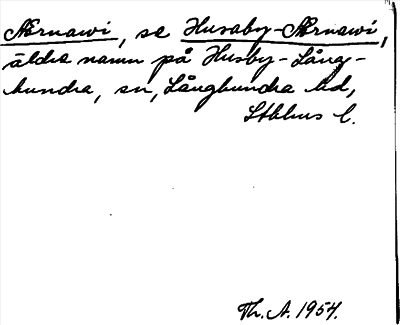 Ærnawi, se Husaby-Ærnawi,
äldre namn på Husby-Lång-
hundra, sn, Långhundra hd,
Sthlms l.
Th. A. 1954.